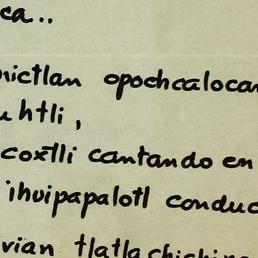 ca..
mictlan opochcalocan
uhtli,
coxtli cantando en
ihuipapalotl conduc
vian tlatlachichin